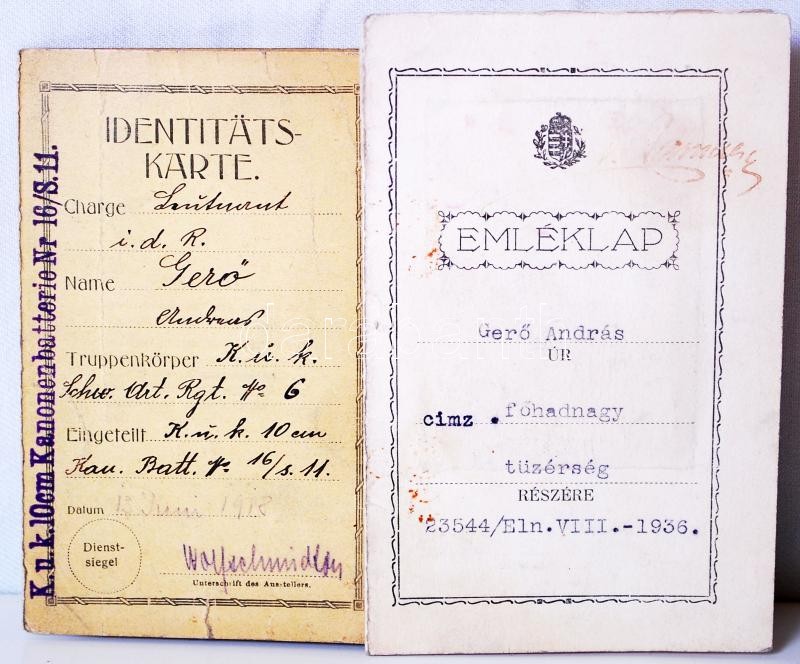 K.u.k.10cm Kanonenbatterie Nr 16/S.11.
IDENTITÄTS-
KARTE.
Charge Leutnant
i. d. R.
Name Gerö
Andreas
Truppenkörper K. u. k.
Schw. Art. Rgt. No 6
Eingeteilt K. u. k. 10 cm
Kan. Batt. No 16/s. 11.
Datum 1918
Dienst-
siegel
Unterschrift des Ausstellers.
EMLÉKLAP
Gerő András
ÚR
címz . főhadnagy
tüzérség
RÉSZÉRE
23544/Eln.VIII.-1936.